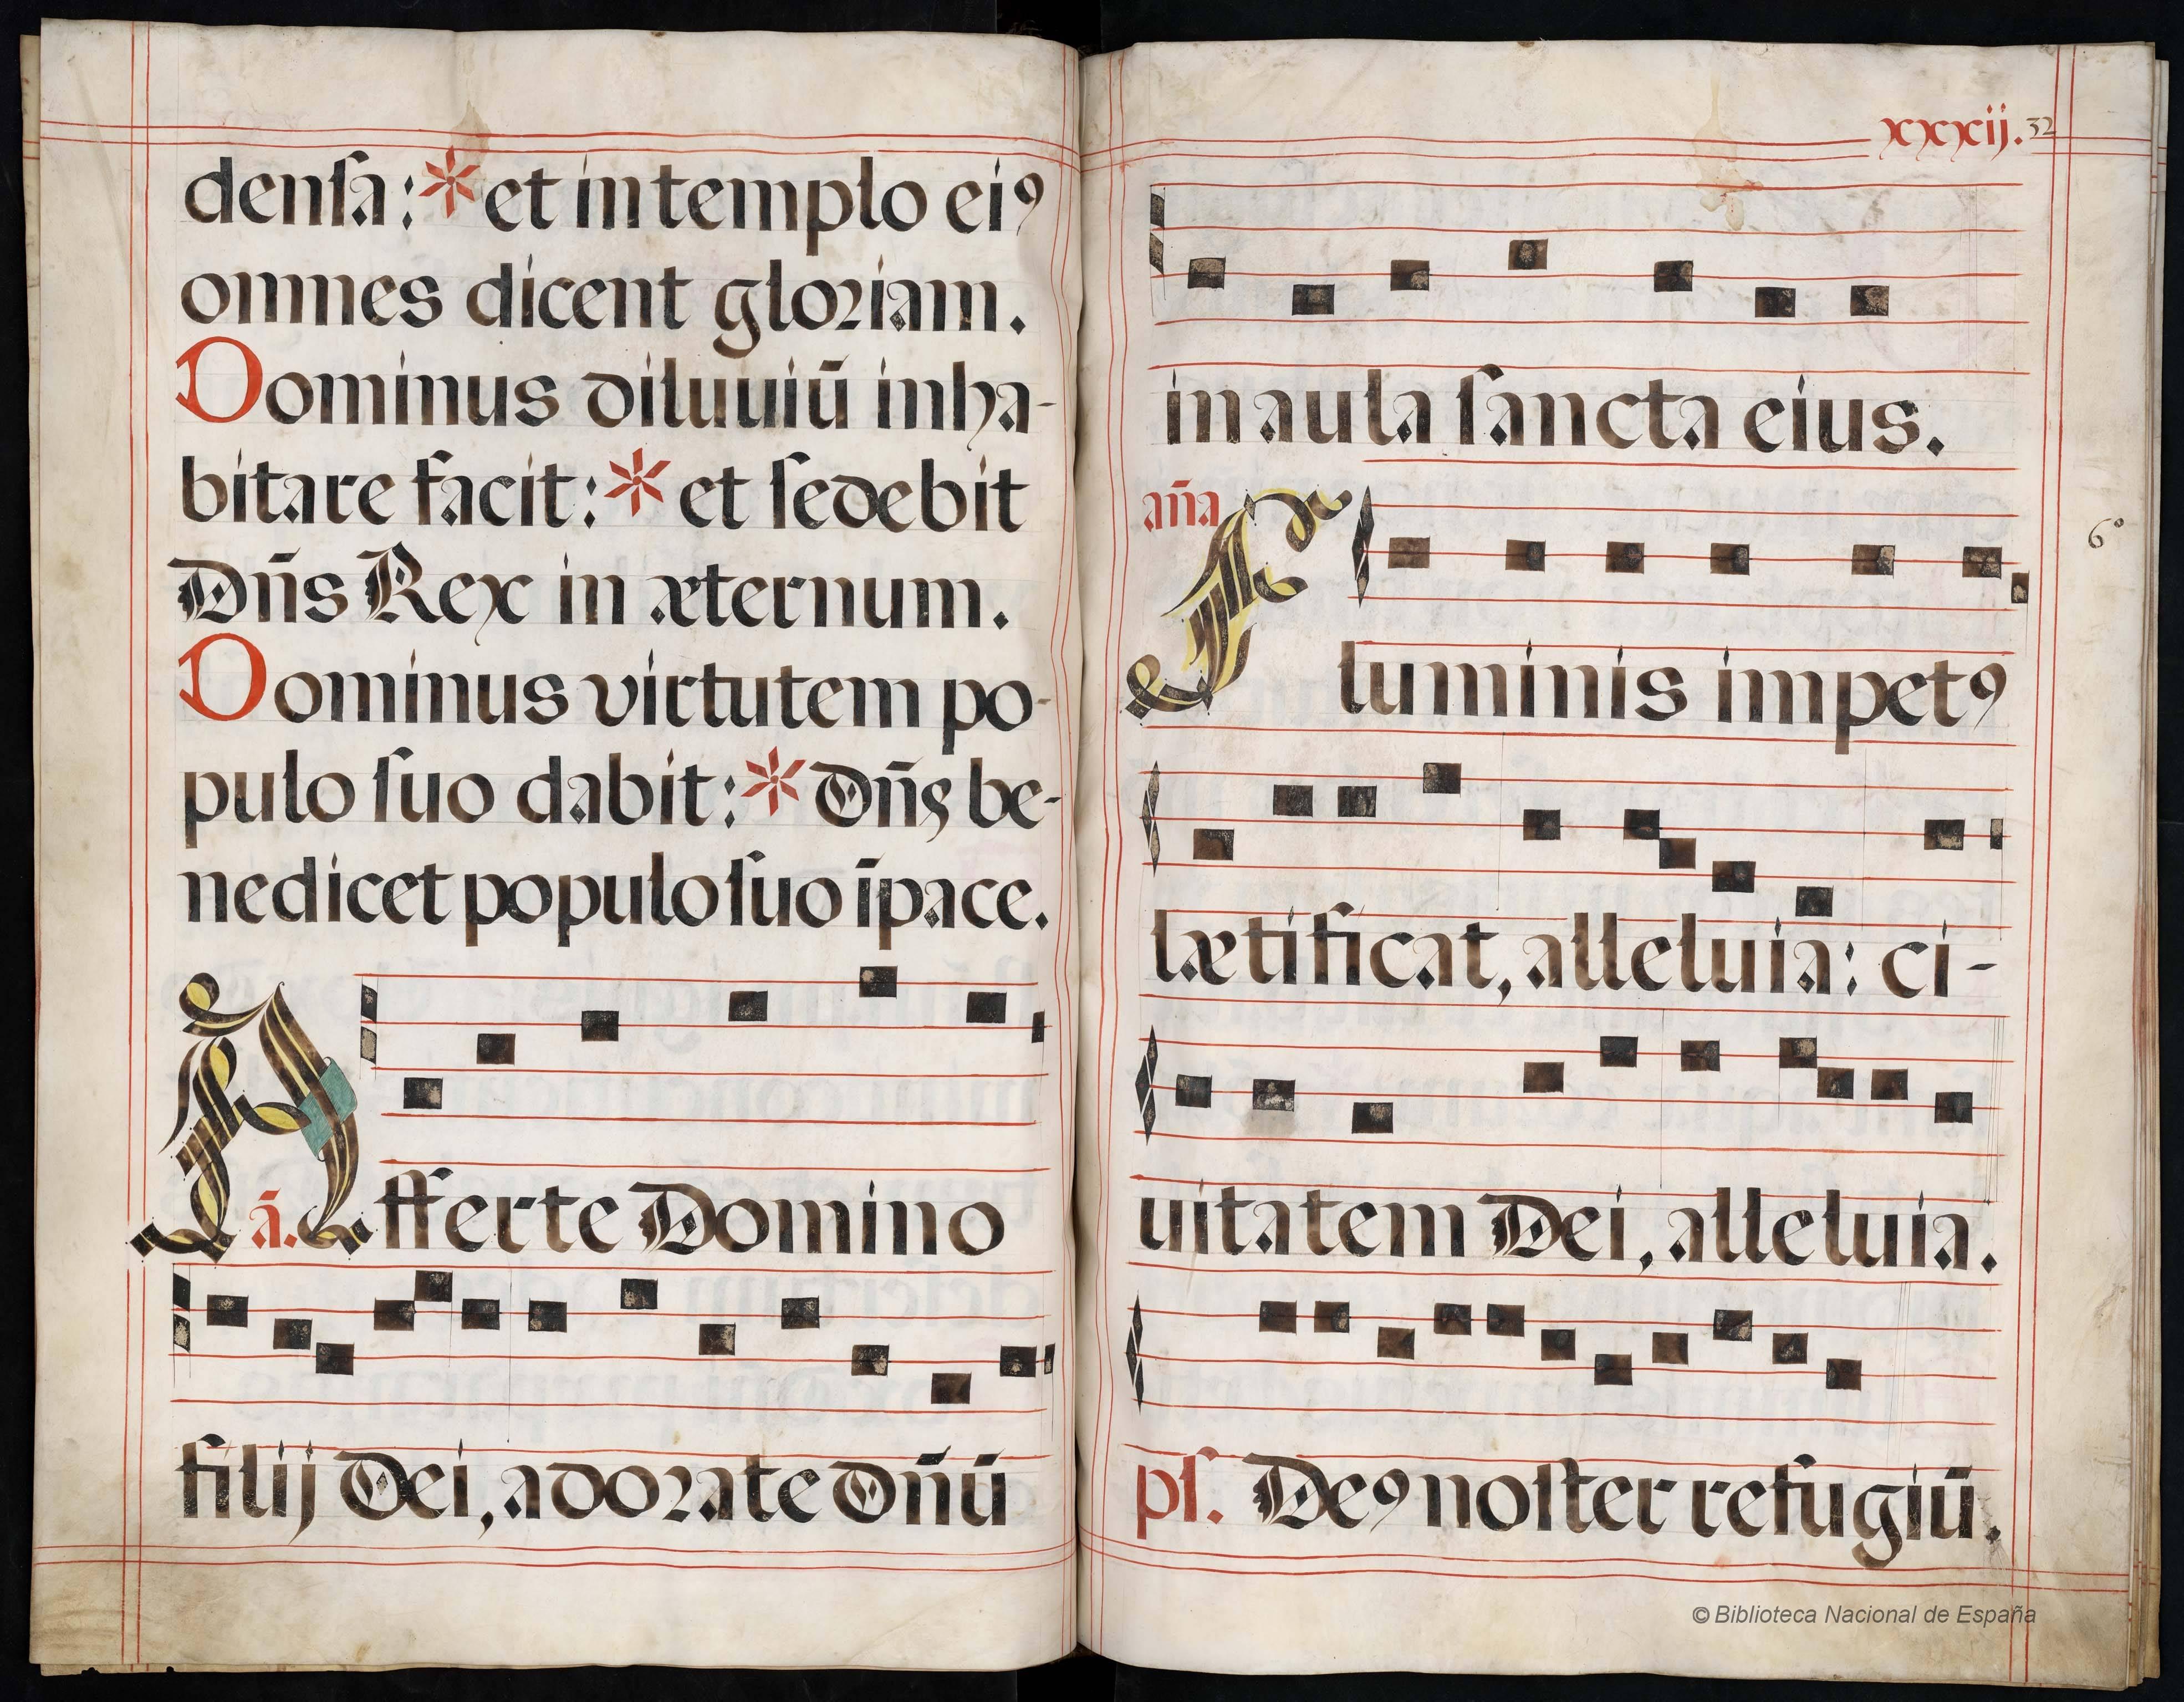 densa: * et in templo ei⁹
omnes dicent gloriam.
Dominus diluuiū inha-
bitare facit: * et sedebit
Dñs Rex in æternum.
Dominus virtutem po-
pulo suo dabit: * Dñs be-
nedicet populo suo īpace.
ā. Afferte Domino
filij Dei, adorate Dñū
xxxij. 32
in aula sancta eius.
aña
6º
Fluminis impet⁹
lætificat, alleluia: ci-
uitatem Dei, alleluia.
ps. De⁹ noster refugiū.
© Biblioteca Nacional de España